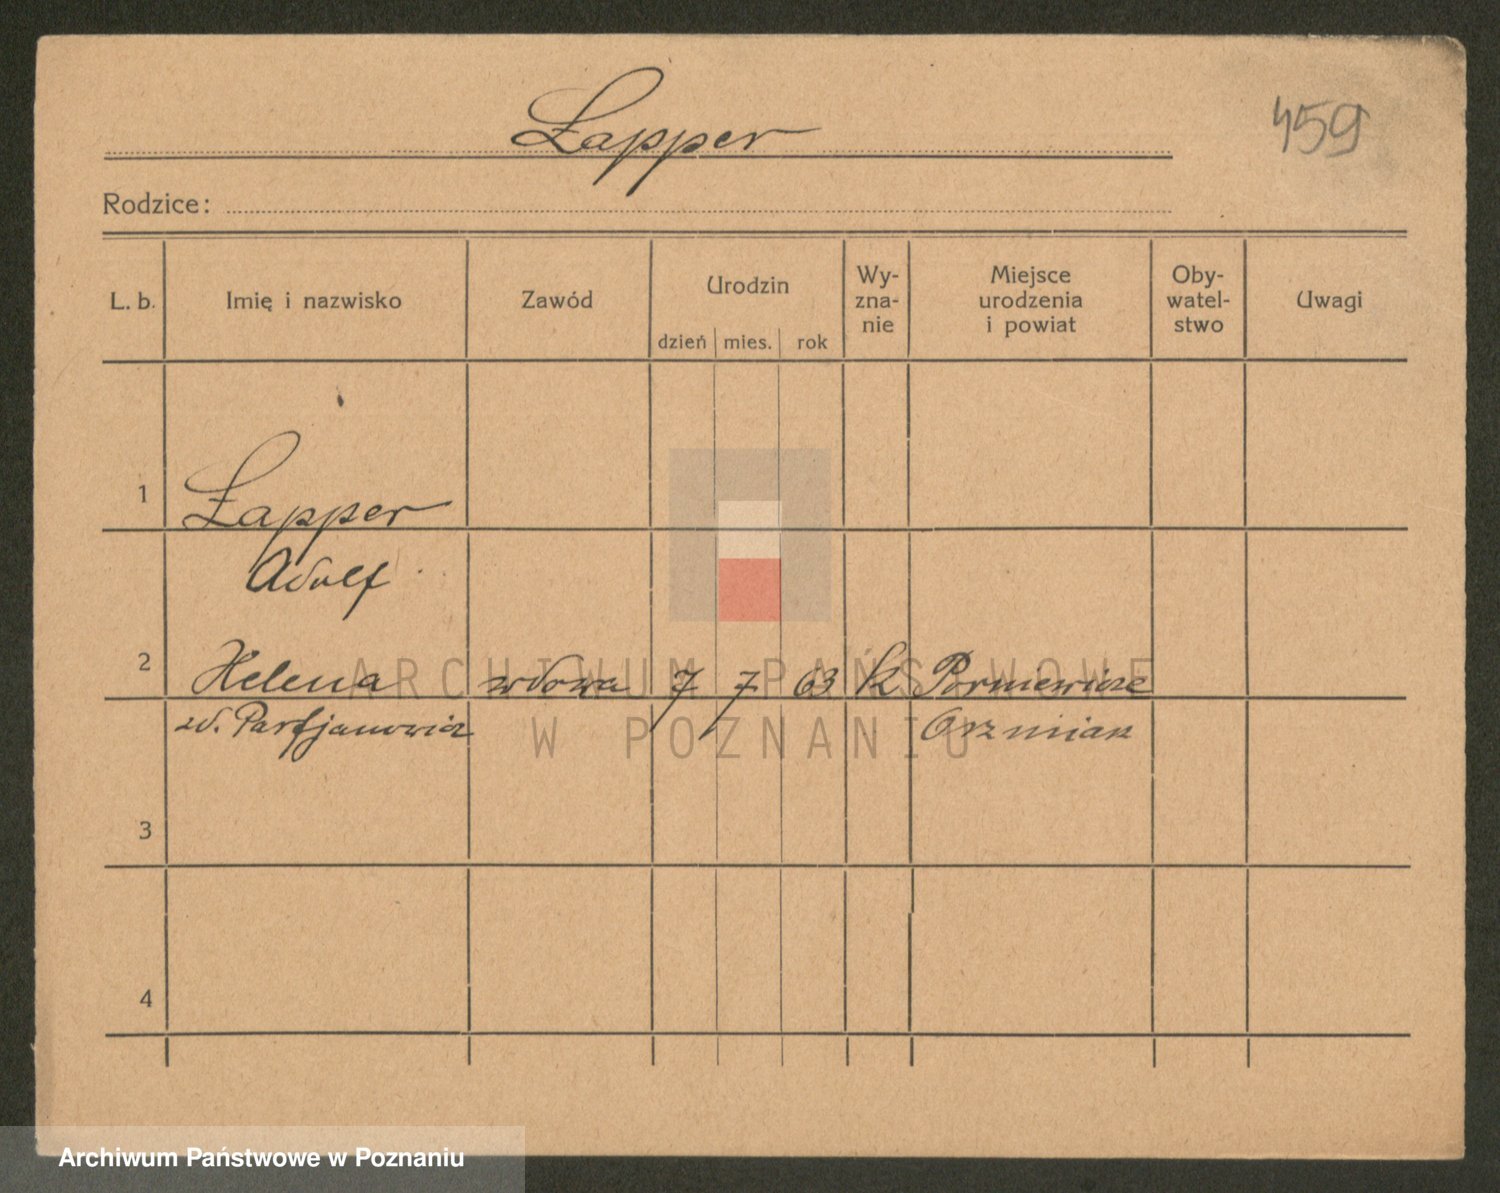 Łapper
459
Rodzice:
L. b.
Imię i nazwisko
Zawód
Urodzin
dzień mies. rok
Wy-
zna-
nie
Miejsce
urodzenia
i powiat
Oby-
watel-
stwo
Uwagi
1
Łapper
Adolf
2
Helena wdowa 7 7 63 k
zd. Parfjanowicz
Oszmiana
3
4
ARCHIWUM PAŃSTWOWE
W POZNANIU
Archiwum Państwowe w Poznaniu